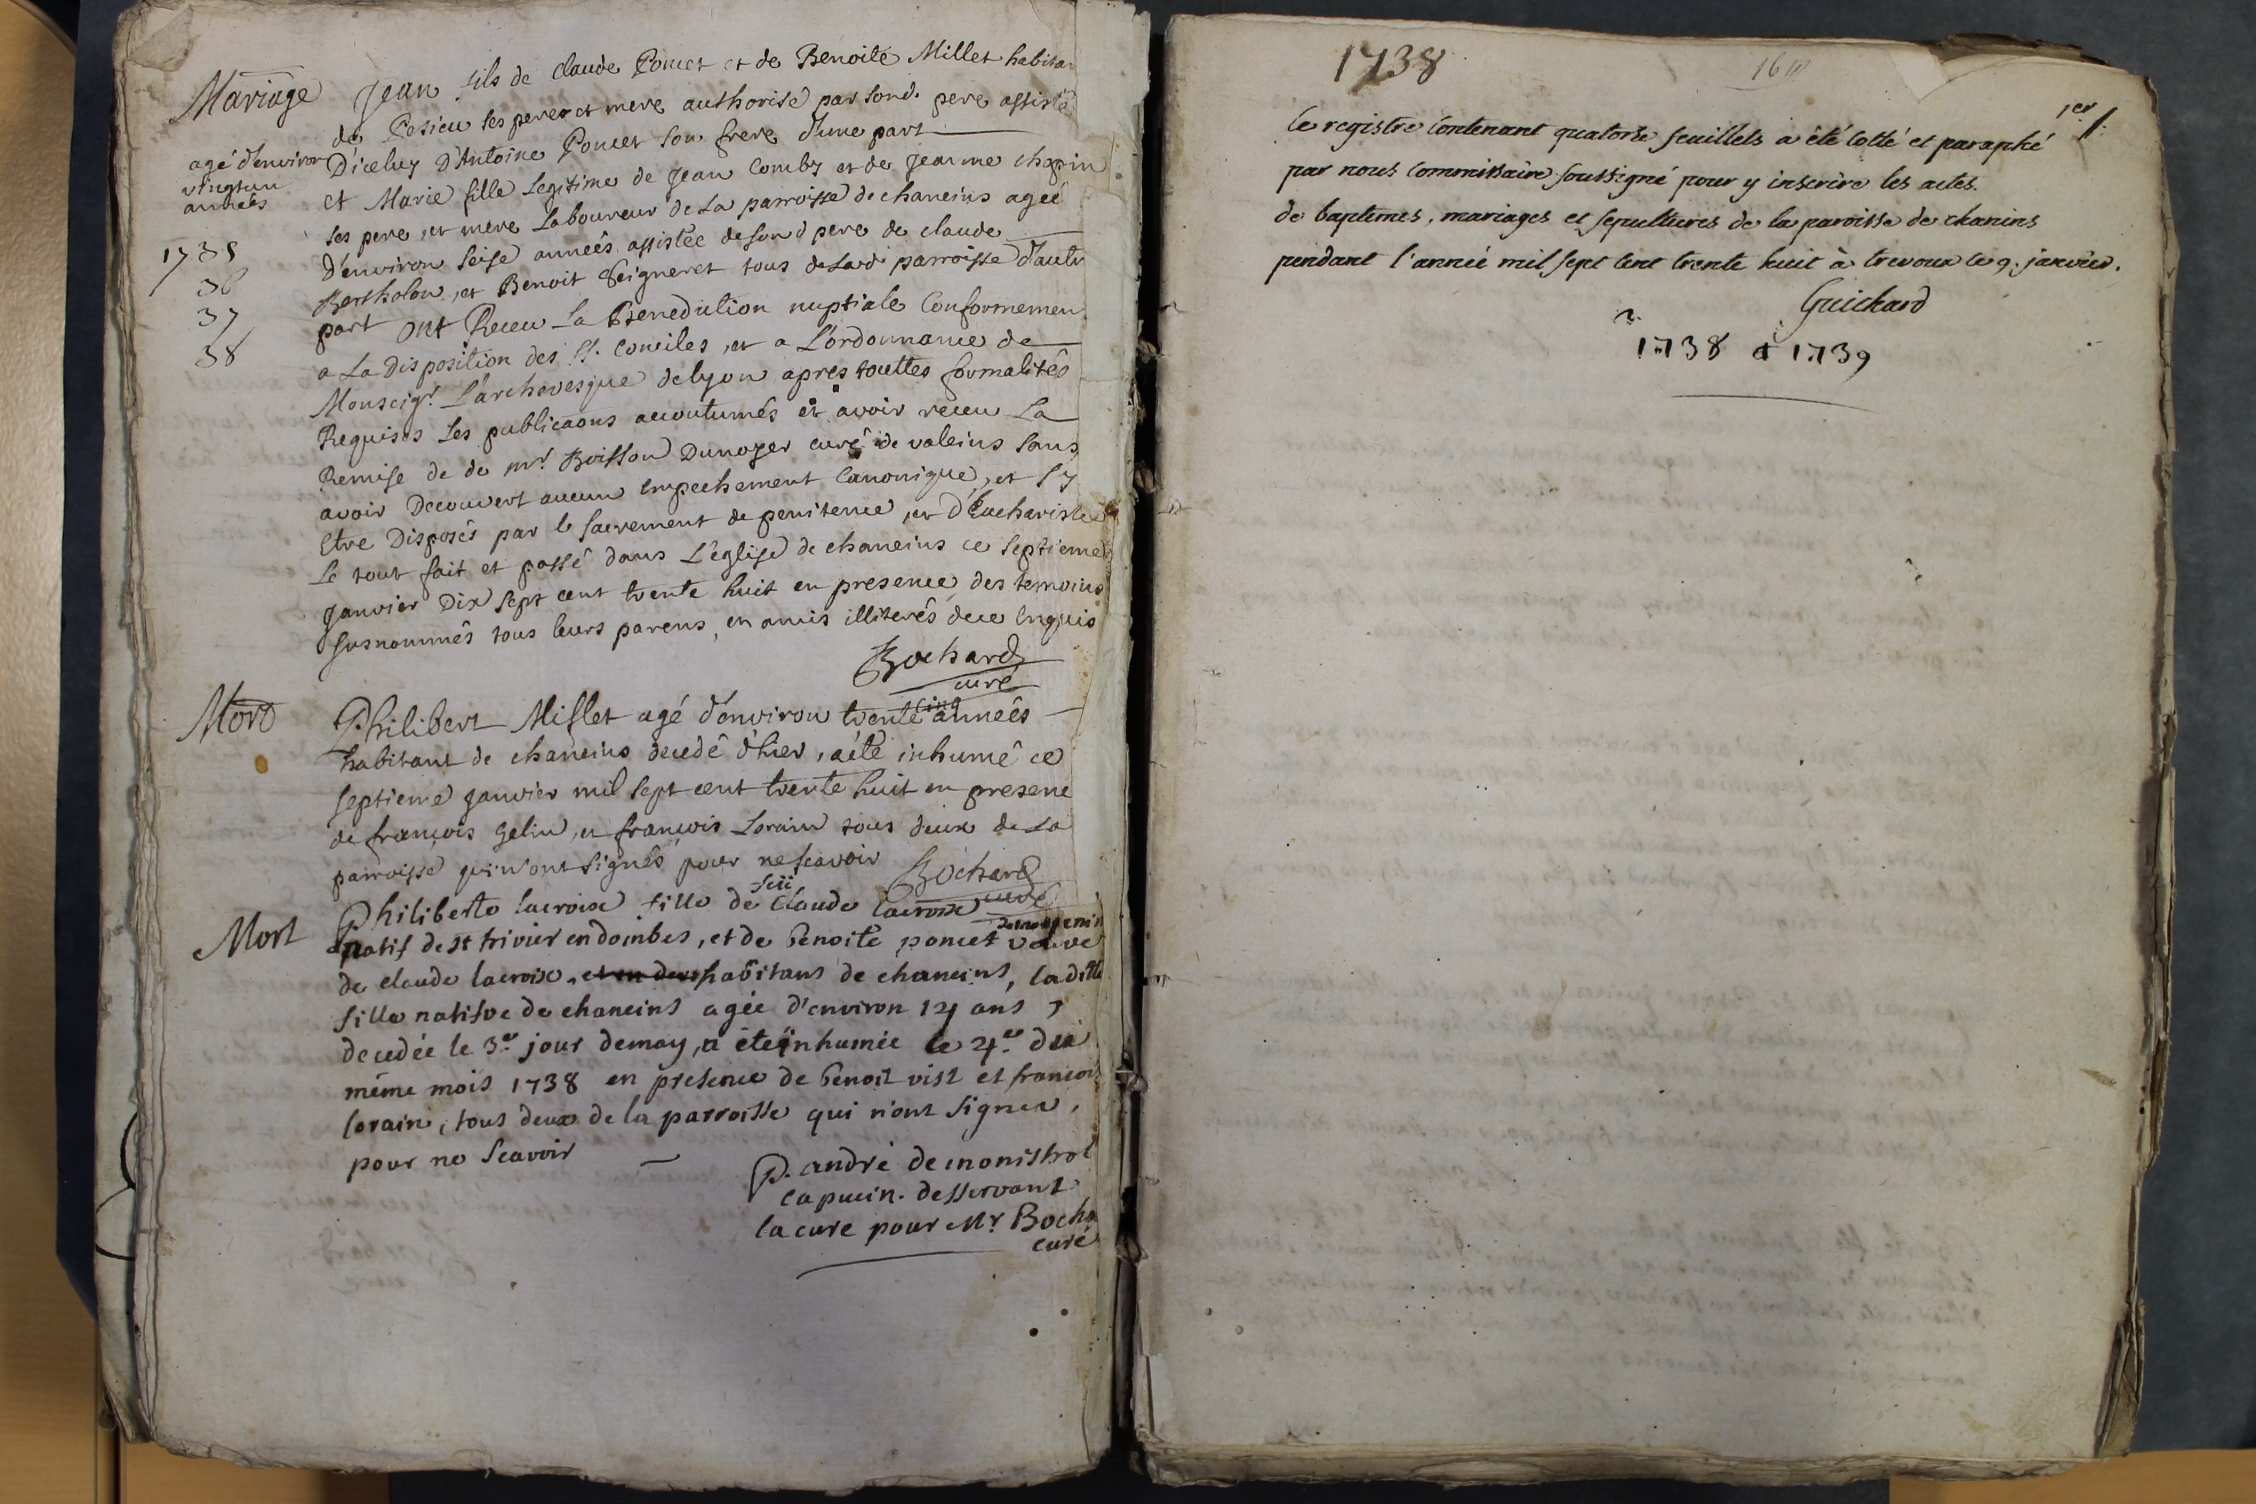 Mariage
agé d'environ
vingt un
années
1735
36
37
38
Jean fils de Claude Poncet et de Benoite Millet habitan
de Pesieu ses pere et mere authorisé par sond. pere assisté
D'iceluy D'Antoine Poncet son frere d'une part
et Marie fille Legitime de Jean Comby et de Jeanne chapin
ses pere et mere Laboureur de La parroisse de chaneins agée
D'environ seise années assistée de son d pere de claude
Bertholon, et Benoit Seigneret tous de Lad. parroisse d'autr
part ont Receu La Benediction nuptiale Conformemen
a La Disposition des St. Conciles, et a L'ordonnance de
Monseigr. L'archevesque de Lyon apres touttes formalités
Requises Les publicaons accoutumés et avoir receu La
Remise de de mr. Boisson Dunoyer curé de valeins sans
avoir Decouvert aucun Empechement Canonique, et s'y
Etre Disposés par le sacrement de penitence, et D'Eucharistie
Le tout fait et passé dans L'église de chaneins ce septieme
Janvier Dix sept cent trente huit en presence des temoins
susnommés tous leurs parens, et amis illiterés de ce Enquis
Bochard
curé
Mort
cinq
Philibert Millet agé d'environ trente années
habitant de chaneins decedé d'hier, a été inhumé ce
septieme janvier mil sept cent trente huit en presenc
de françois Gelin, et françois Lorain tous deux de La
parroisse qui n'ont signés pour ne scavoir
Bochard
curé
Mort
feu
Philiberte lacroix fille de claude lacroix
natif de st trivier en dombes, et de benoite poncet veuve
de claude lacroix, habitans de chaneins, laditte
fille natifve de chaneins agée d'environ 14 ans,
decedée le 3e jour de may, a été inhumée le 4e du
même mois 1738 en presence de benoit vist et francois
lorain, tous deux de la parroisse qui n'ont signer,
pour ne scavoir
P. andré de monistrol
capucin. desservant
la cure pour Mr Bocha
curé
1738
1er
le registre contenant quatorse feuillets a été cotté et paraphé
par nous commissaire soussigné pour y inscrire les actes.
de baptêmes, mariages et sepultures de la paroisse de chanins
pendant l'année mil sept cent trente huit à trevoux ce 9. janvier.
Guichard
1738 et 1739